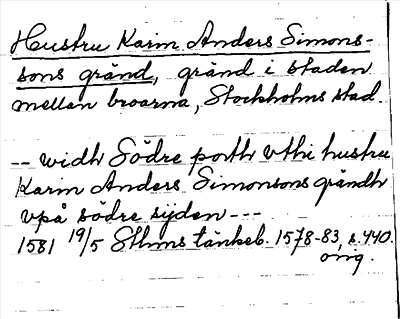 Hustru Karin Anders Simons-
sons gränd, gränd i staden
mellan broarna, Stockholms stad.
-- widh Södre porth vthi hustru
Karin Anders Simonsons grändh
vpå södre sijden ---
1581 19/5 Sthms tänkeb. 1578-83, s. 440.
orig.